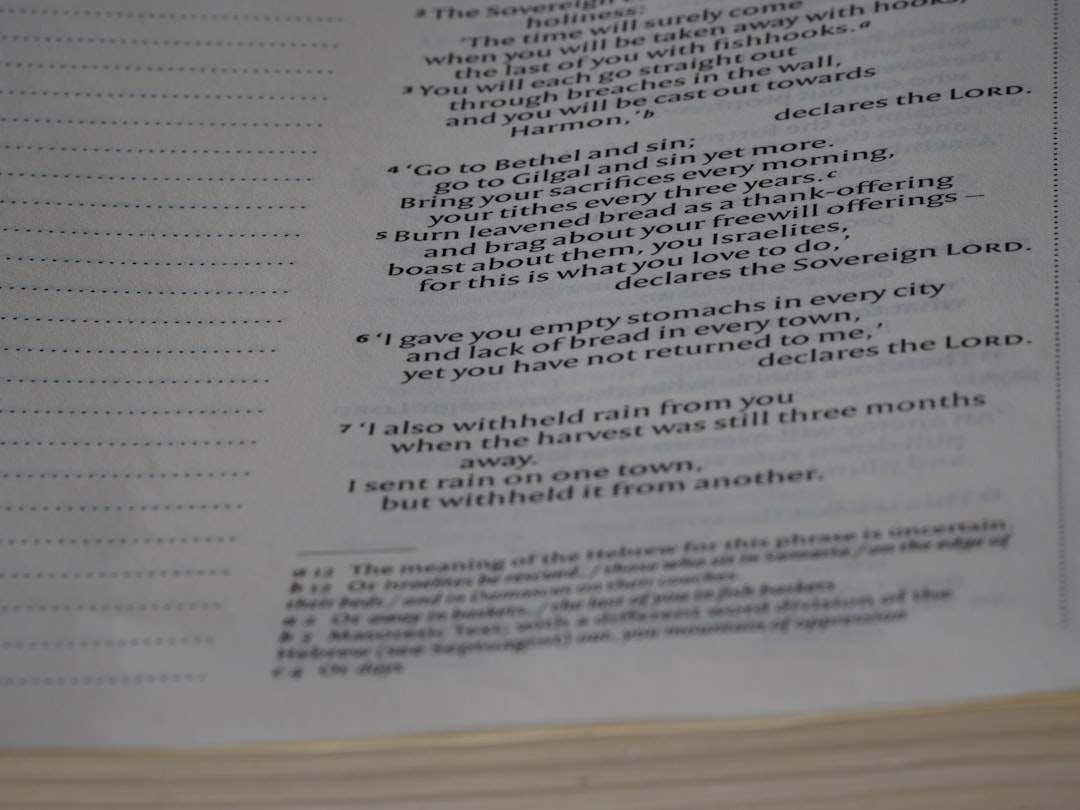 2 The Sovereign
holiness:
‘The time will surely come
when you will be taken away with hooks,
the last of you with fishhooks.a
3 You will each go straight out
through breaches in the wall,
and you will be cast out towards
Harmon,’b
declares the LORD.
4 ‘Go to Bethel and sin;
go to Gilgal and sin yet more.
Bring your sacrifices every morning,
your tithes every three years.c
5 Burn leavened bread as a thank-offering
and brag about your freewill offerings –
boast about them, you Israelites,
for this is what you love to do,’
declares the Sovereign LORD.
6 ‘I gave you empty stomachs in every city
and lack of bread in every town,
yet you have not returned to me,’
declares the LORD.
7 ‘I also withheld rain from you
when the harvest was still three months
away.
I sent rain on one town,
but withheld it from another.
a 12 The meaning of the Hebrew for this phrase is uncertain.
b 12 Or Israelites be rescued, / those who sit in Samaria / on the edge of
their beds / and in Damascus on their couches.
a 2 Or away in baskets, / the last of you in fish baskets
b 3 Masoretic Text; with a different word division of the
Hebrew (see Septuagint) out, you mountain of oppression
c 4 Or days